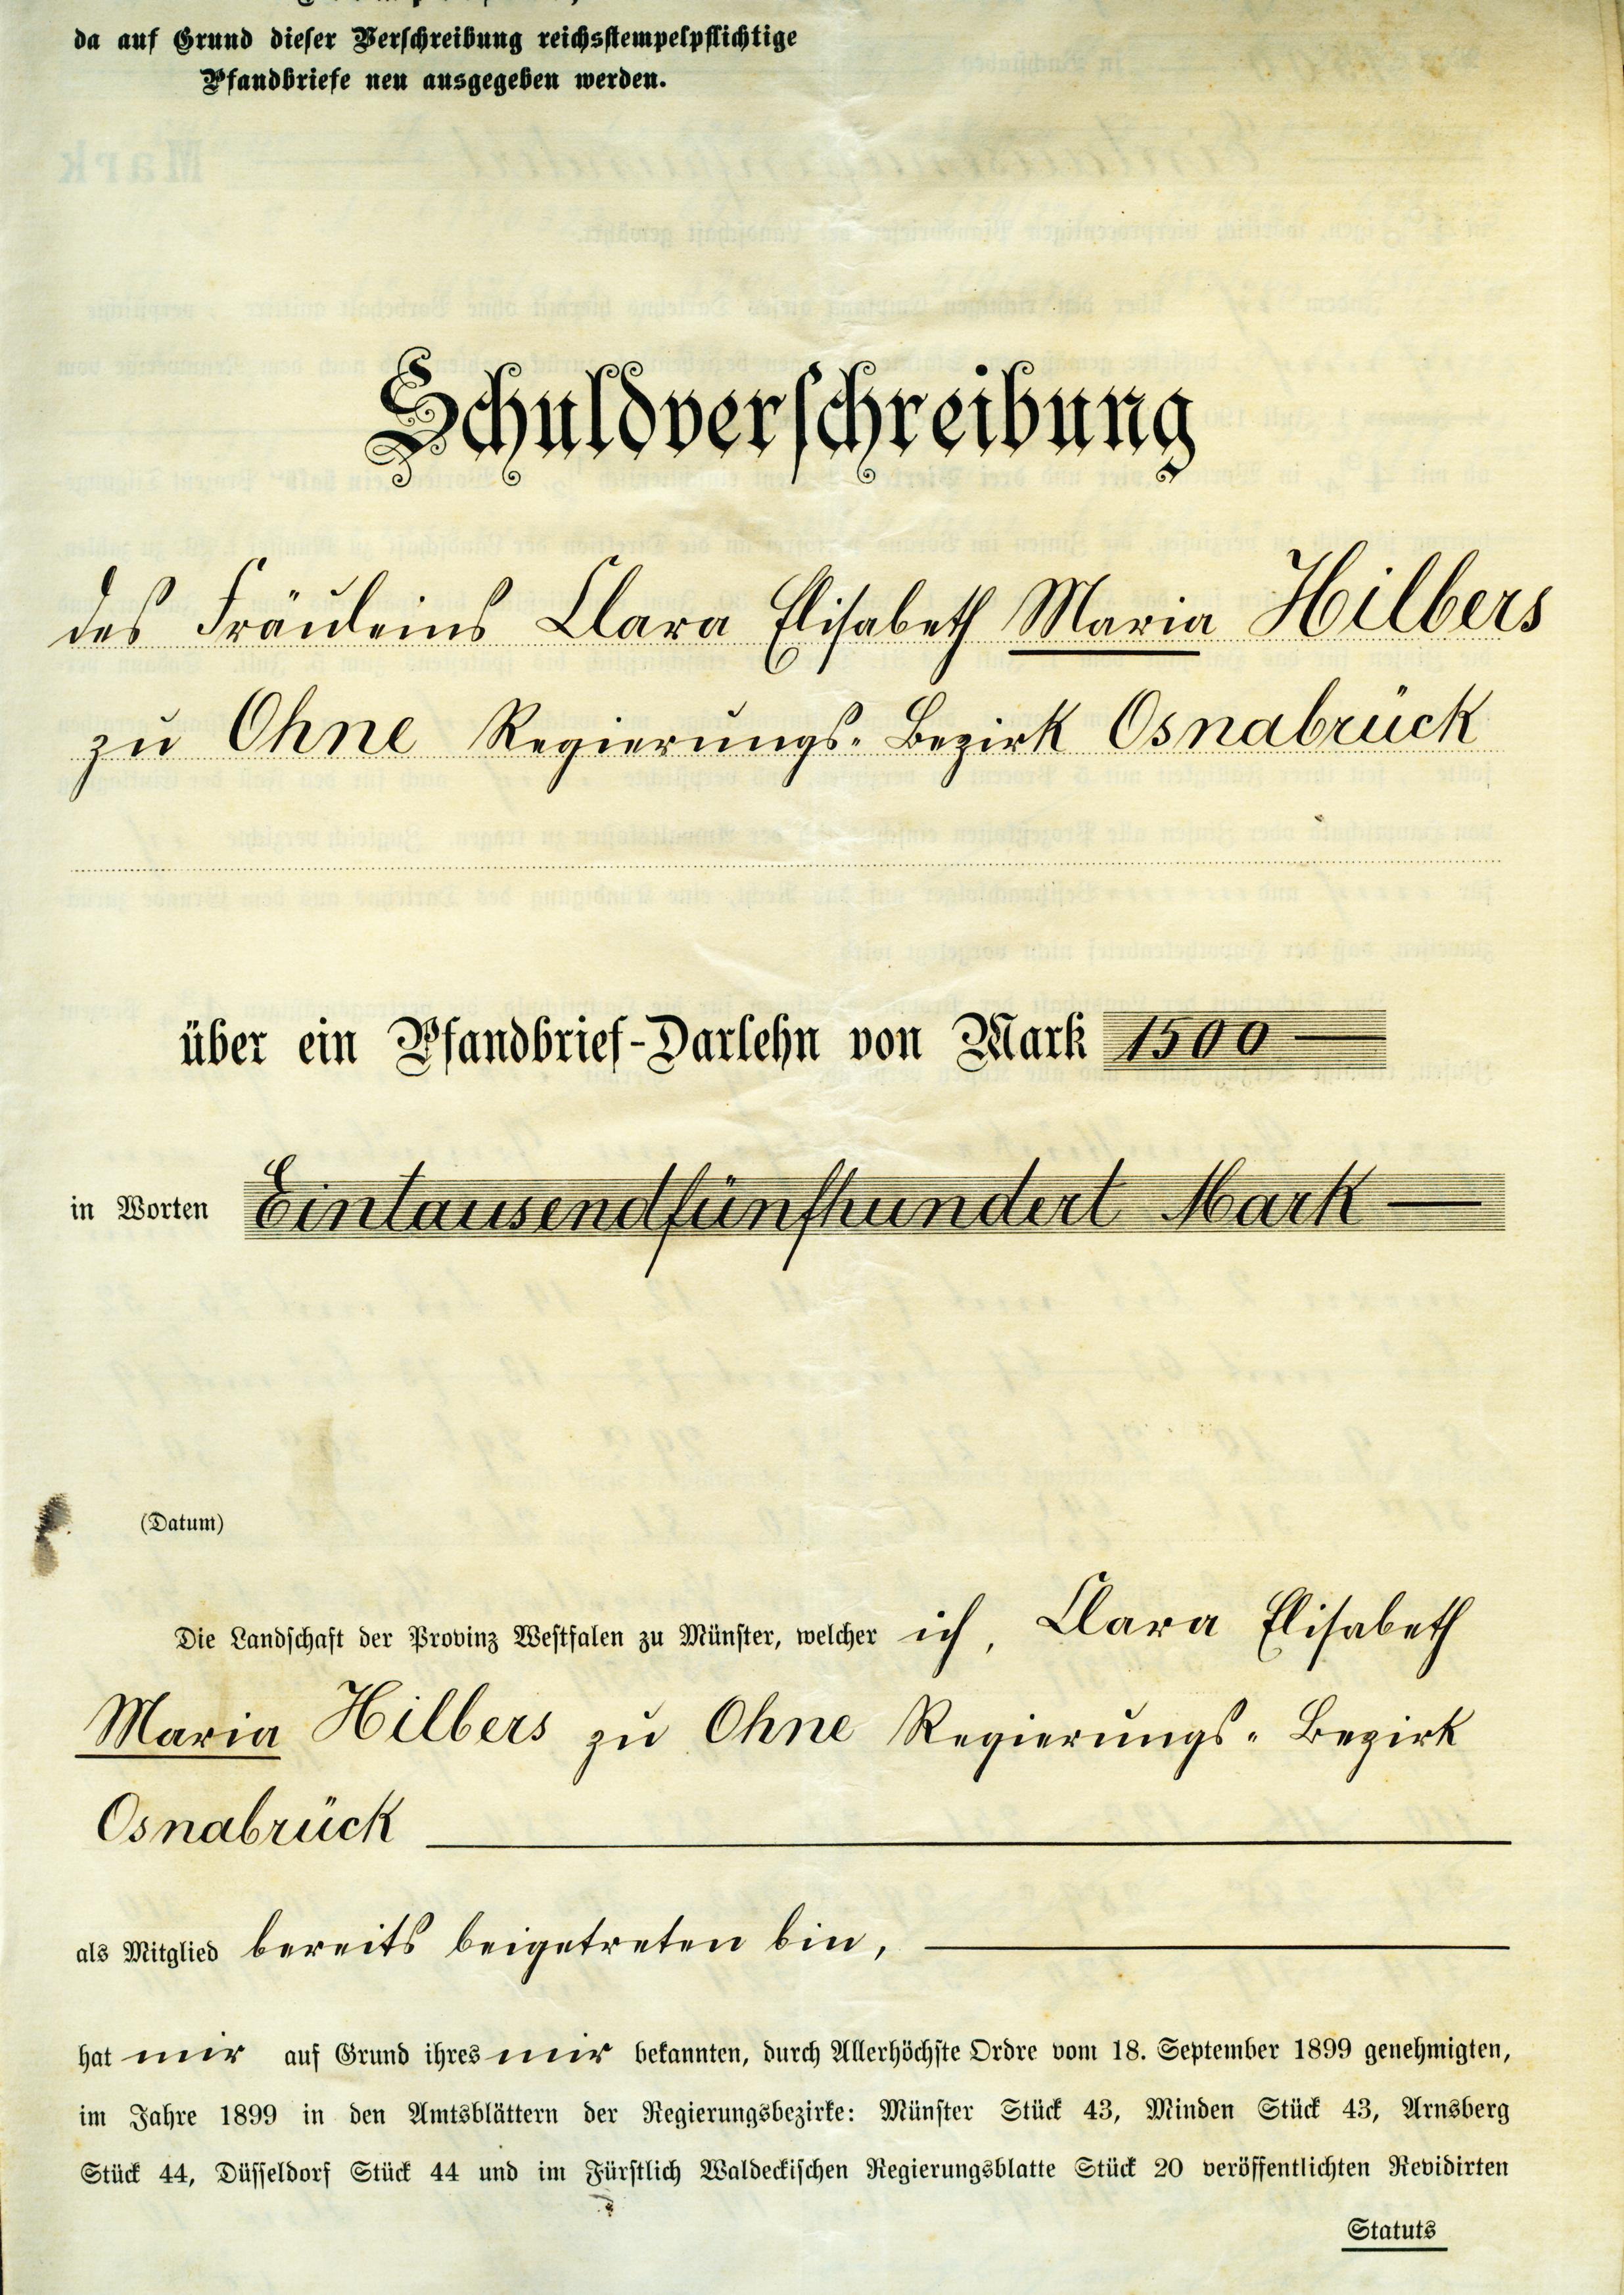 da auf Grund dieser Verschreibung reichsstempelpflichtige
Pfandbriefe neu ausgegeben werden.
Schuldverschreibung
des Fräuleins Clara Elisabeth Maria Hilbers
zu Ohne Regierungs-Bezirk Osnabrück
über ein Pfandbrief-Darlehn von Mark 1500
in Worten Eintausendfünfhundert Mark
(Datum)
Die Landschaft der Provinz Westfalen zu Münster, welcher ich, Clara Elisabeth
Maria Hilbers zu Ohne Regierungs-Bezirk
Osnabrück
als Mitglied bereits beigetreten bin,
hat mir auf Grund ihres mir bekannten, durch Allerhöchste Ordre vom 18. September 1899 genehmigten,
im Jahre 1899 in den Amtsblättern der Regierungsbezirke: Münster Stück 43, Minden Stück 43, Arnsberg
Stück 44, Düsseldorf Stück 44 und im Fürstlich Waldeckischen Regierungsblatte Stück 20 veröffentlichten Revidirten
Statuts